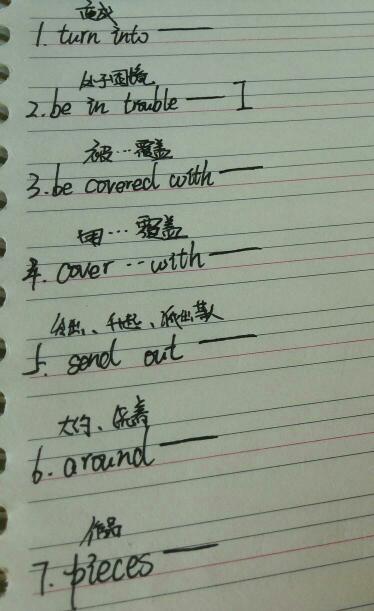 变成
1. turn into —
处于困境
2. be in trouble —
被…覆盖
3. be covered with —
用…覆盖
4. cover … with —
派出某人
5. send out —
大约、
6. around —
作品
7. pieces —